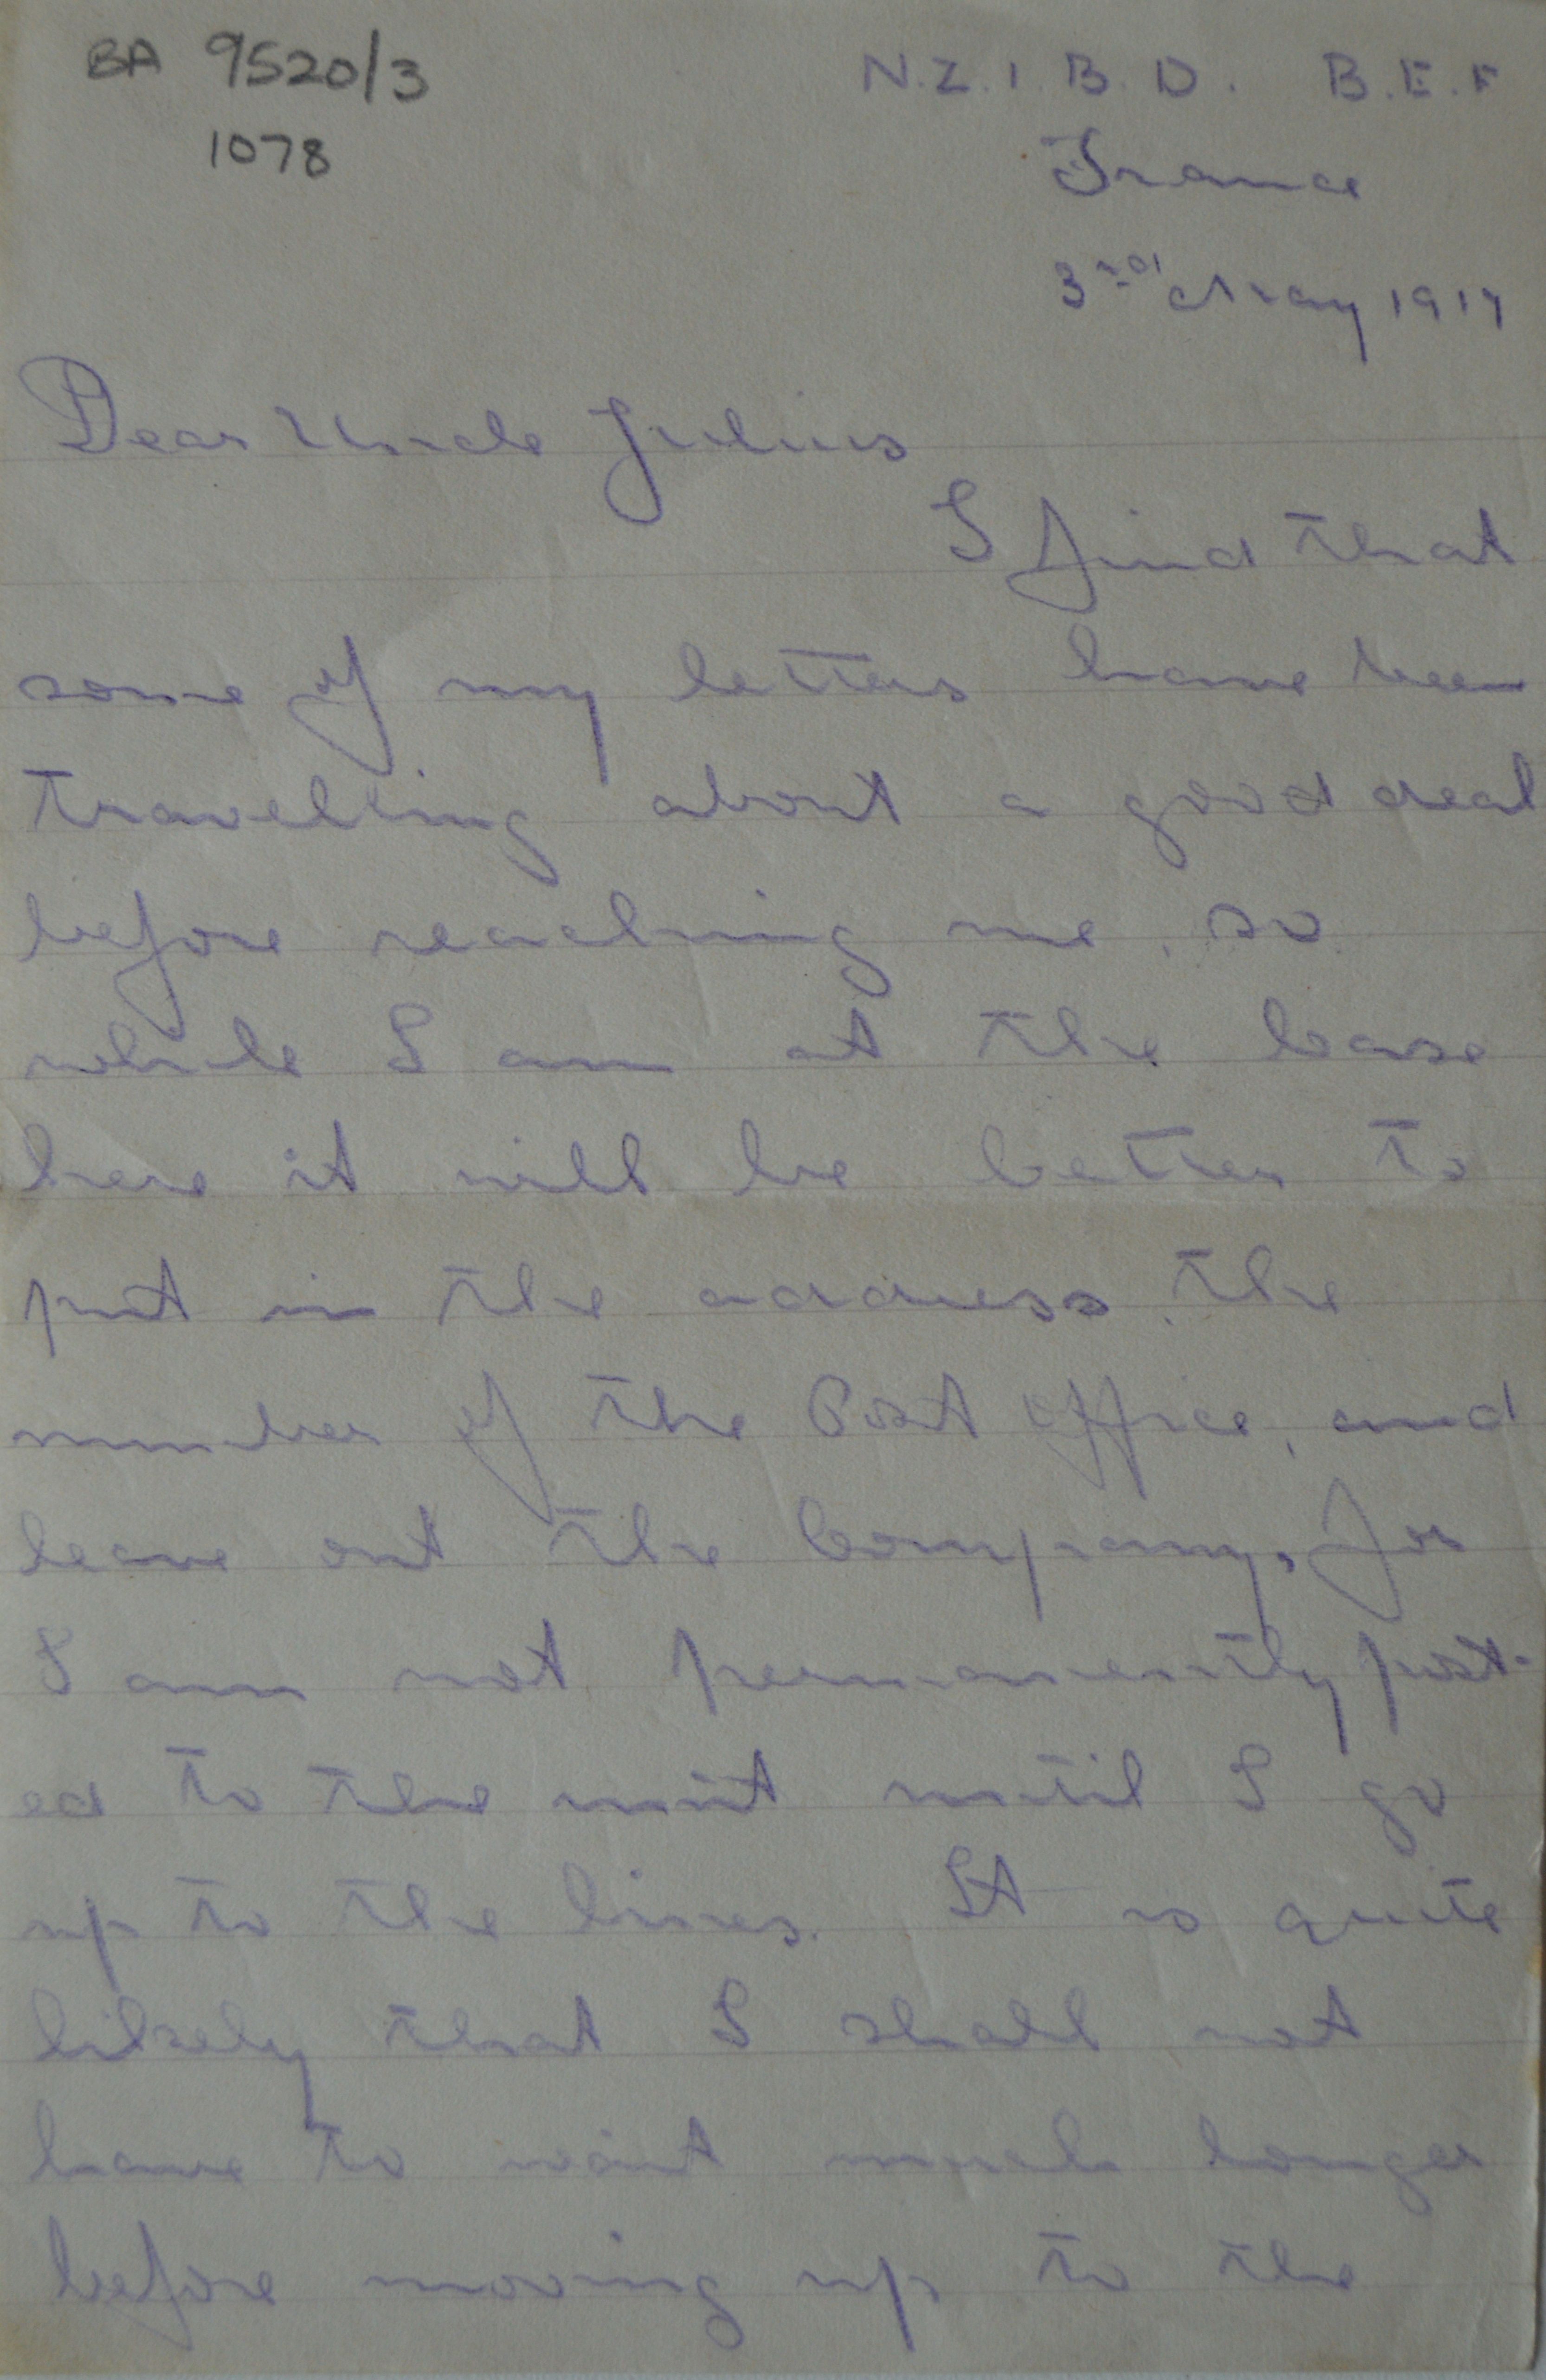 BA 9520/3
1078
N.Z.I.B.D. B.E.F
France
3rd May 1917
Dear Uncle Julius
I find that
some of my letters have been
travelling about a good deal
before reaching me, so
while I am at the base
here it will be better to
put in the address, the
number of the Post office, and
leave out the Company, for
I am not permanently post-
ed to the unit until I go
up to the lines. It is quite
likely that I shall not
have to wait much longer
before moving up to the